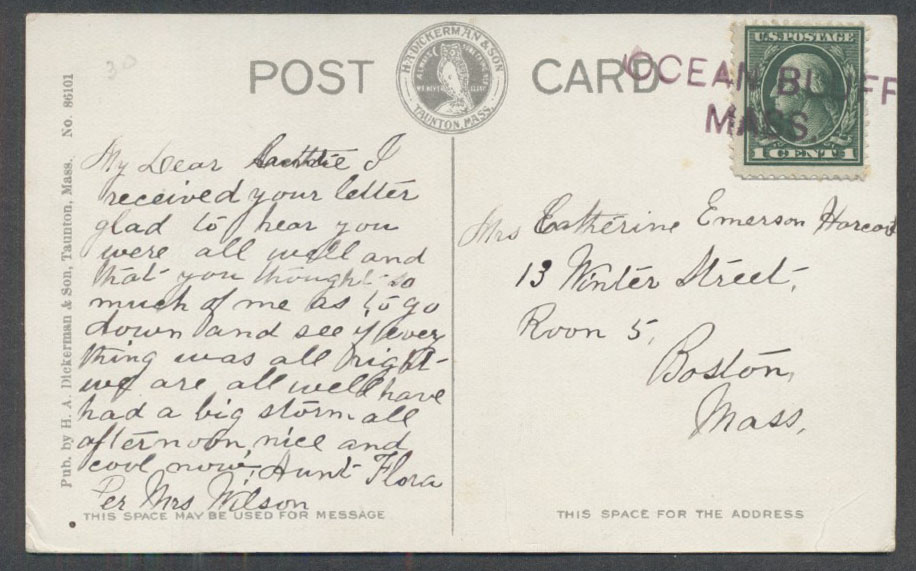 POST CARD
H.A. DICKERMAN & SON
TAUNTON, MASS.
OCEAN BLUFF
MASS
U.S. POSTAGE
1 CENT 1
30
Pub. by H. A. Dickerman & Son, Taunton, Mass. No. 86101
My Dear I
received your letter
glad to hear you
were all well and
that you thought so
much of me as to go
down and see if every
thing was all right
we are all well have
had a big storm all
afternoon, nice and
cool now, Aunt Flora
Per Mrs Wilson
THIS SPACE MAY BE USED FOR MESSAGE
Mrs Catherine Emerson Harcou
13 Winter Street,
Roon 5,
Boston,
Mass,
THIS SPACE FOR THE ADDRESS